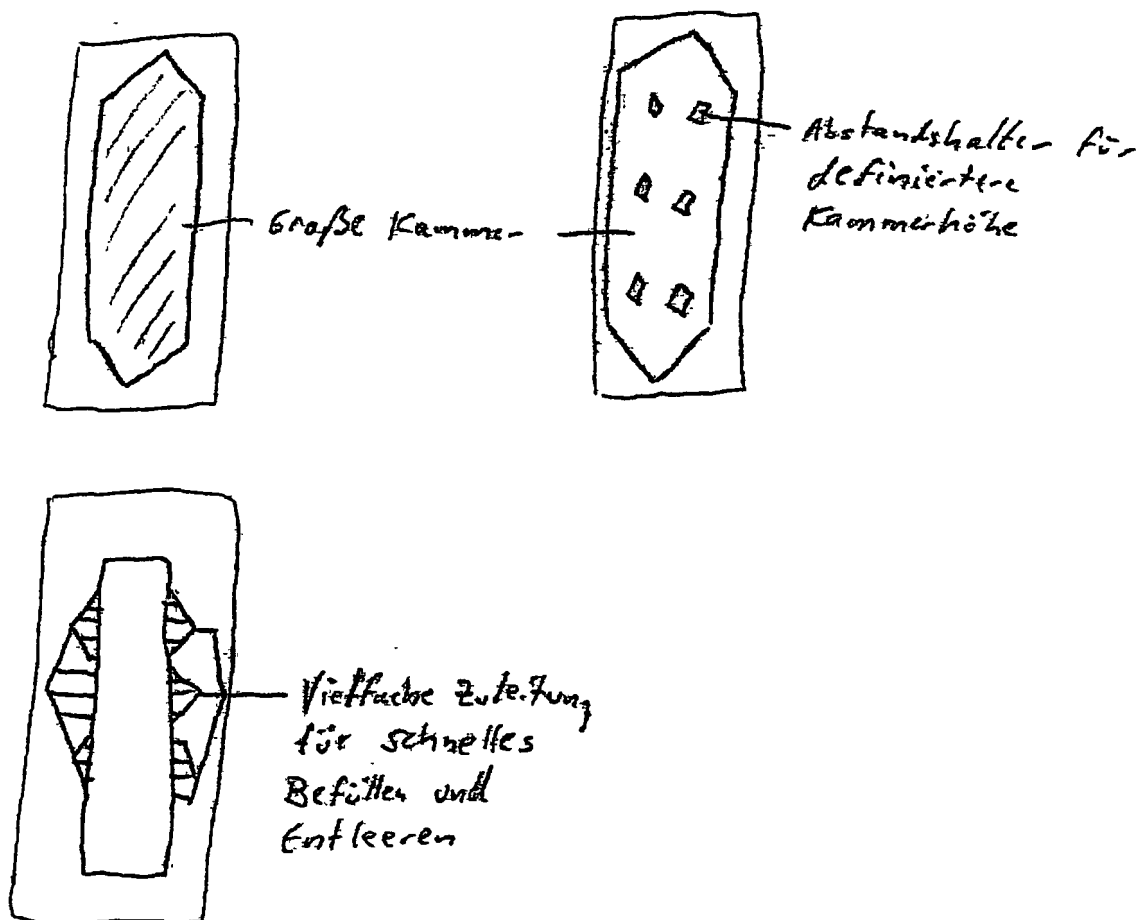 Große Kammer
Abstandshalter für
definiertere
Kammerhöhe
Vielfache Zuleitung
für schnelles
Befüllen und
Entleeren